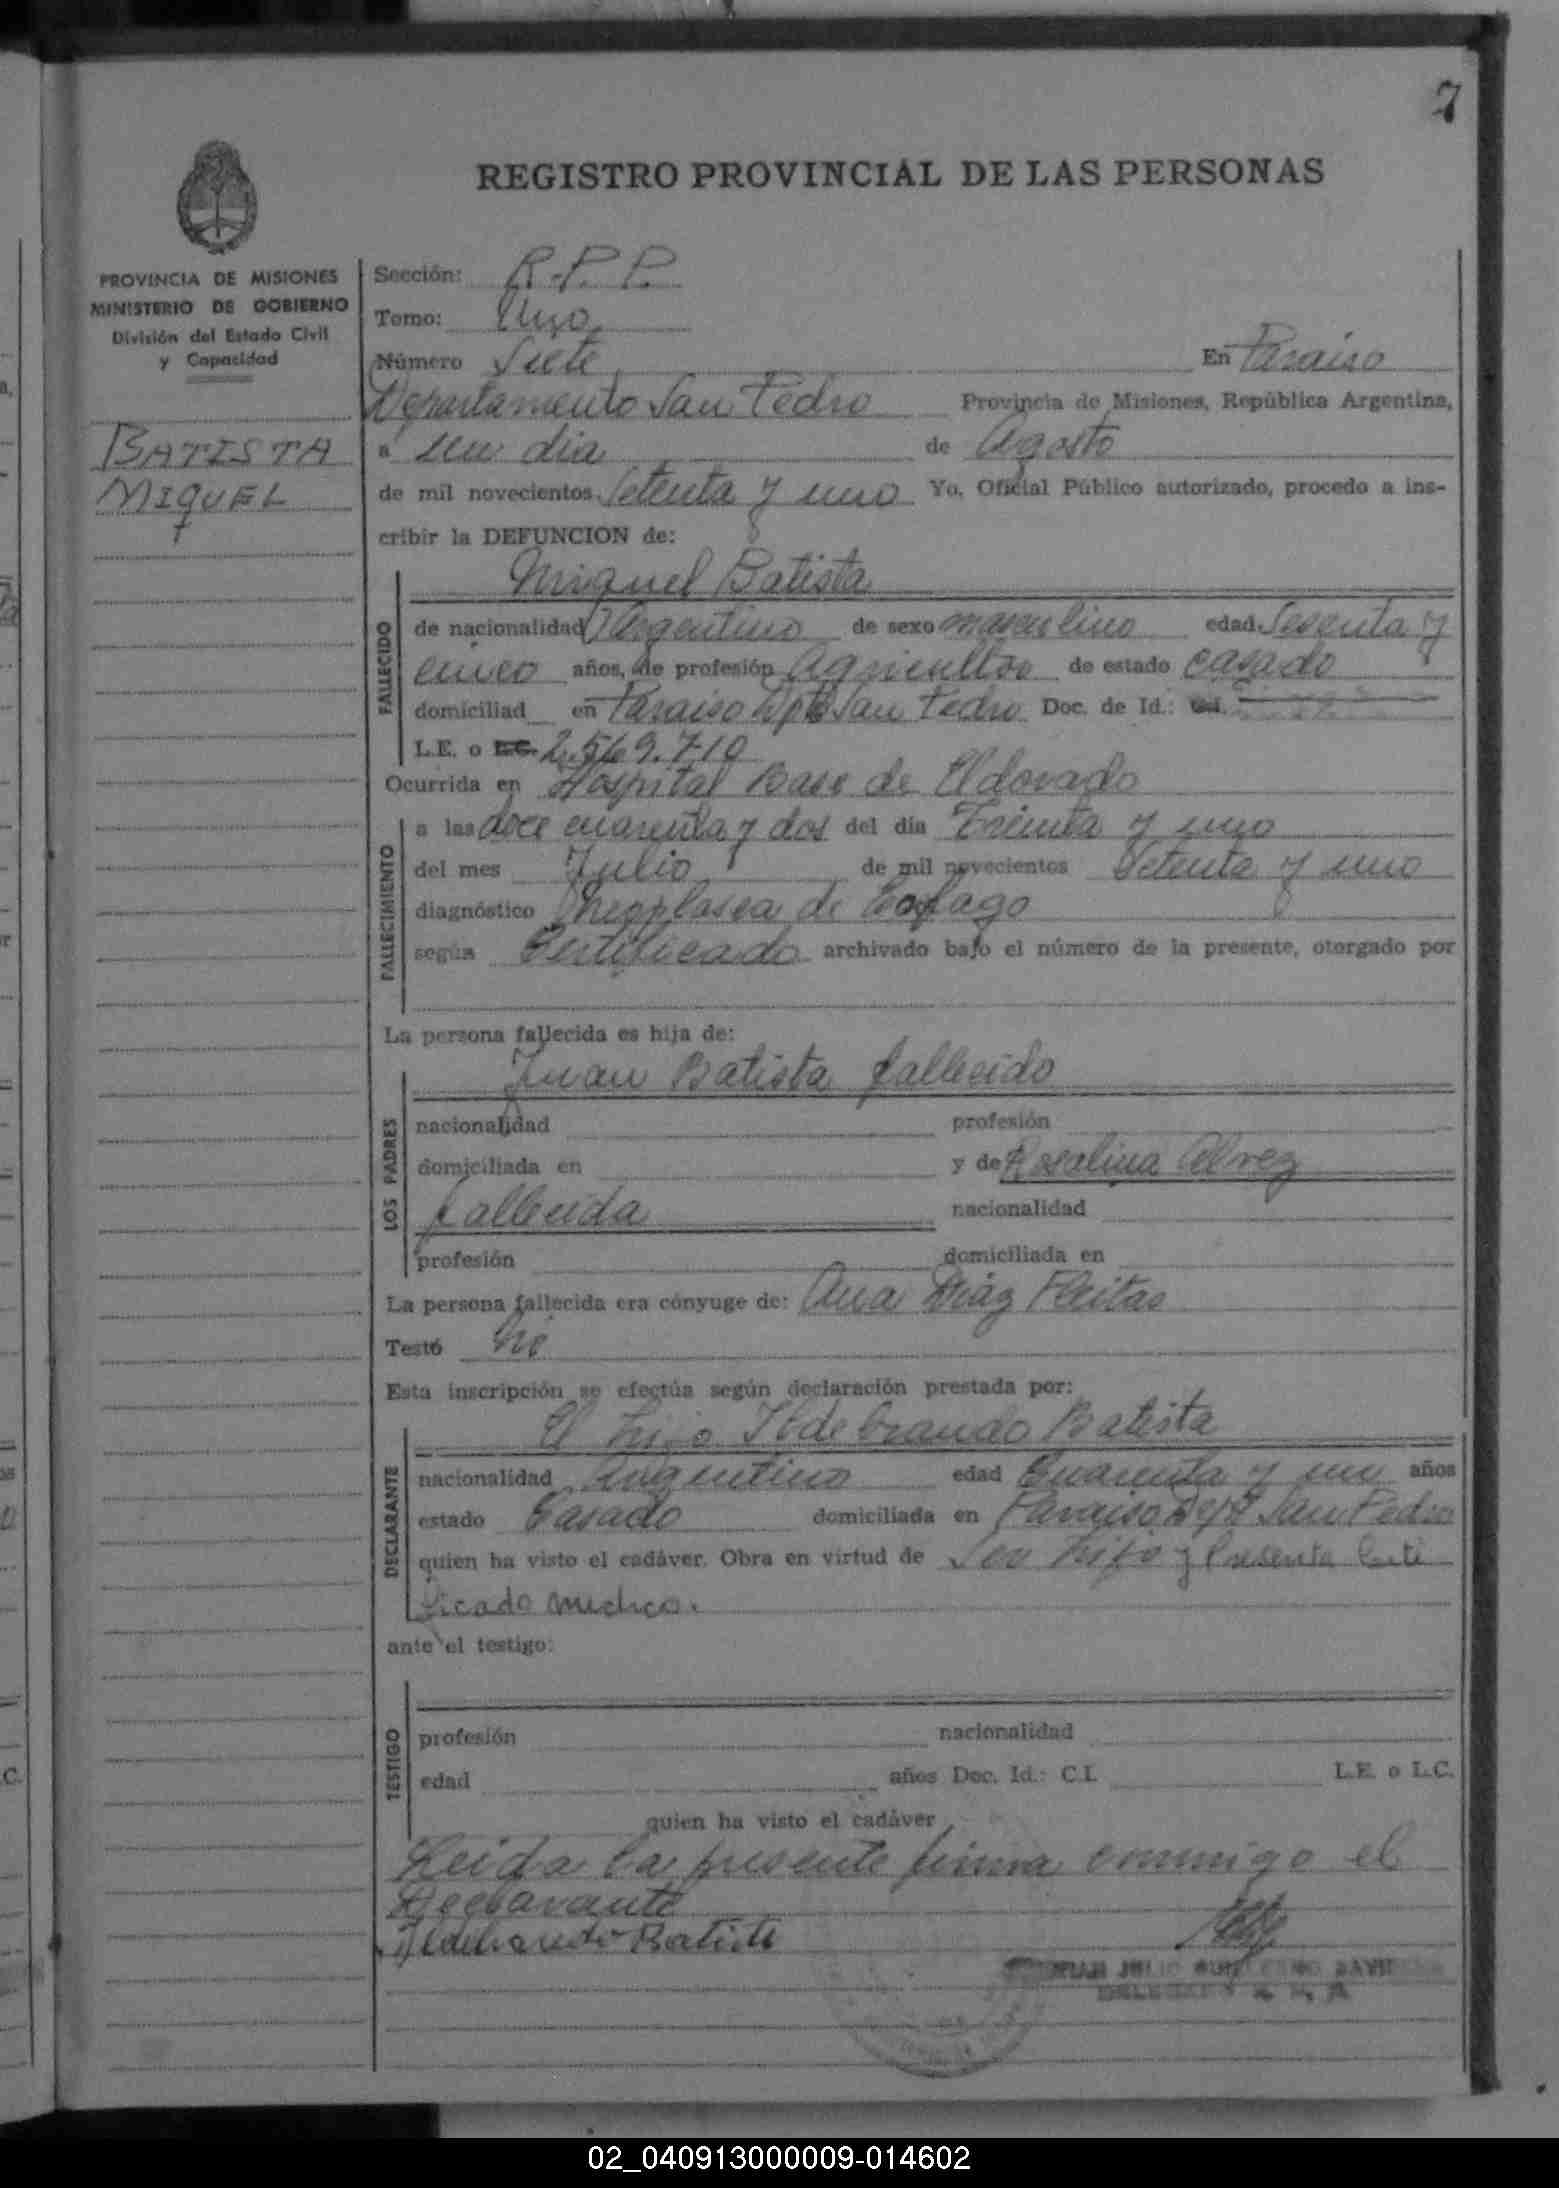 7
REGISTRO PROVINCIAL DE LAS PERSONAS
PROVINCIA DE MISIONES
MINISTERIO DE GOBIERNO
División del Estado Civil
y Capacidad
BATISTA
MIGUEL
Sección: R.P.P.
Tomo: Uno
Número Siete En Paraiso
Departamento San Pedro Provincia de Misiones, República Argentina,
a un dia de Agosto
de mil novecientos Setenta y uno Yo, Oficial Público autorizado, procedo a ins-
cribir la DEFUNCION de:
Miguel Batista
FALLECIDO
de nacionalidad Argentino de sexo masculino edad Sesenta y
cinco años, de profesión Agricultor de estado casado
domiciliad en Paraiso Dpto San Pedro Doc. de Id.: C.I.
L.E. o L.C. 2.569.710
Ocurrida en Hospital Base de Eldorado
FALLECIMIENTO
a las doce cuarenta y dos del día Treinta y uno
del mes Julio de mil novecientos Setenta y uno
diagnóstico de
según Certificado archivado bajo el número de la presente, otorgado por
La persona fallecida es hija de:
Juan Batista fallecido
LOS PADRES
nacionalidad profesión
domiciliada en y de Rosalina Alvez
fallecida nacionalidad
profesión domiciliada en
La persona fallecida era cónyuge de: Ana Diaz Fleitas
Testó
Esta inscripción se efectúa según declaración prestada por:
El hijo Ildebrando Batista
DECLARANTE
nacionalidad Argentino edad Cuarenta y un años
estado Casado domiciliada en Paraiso Dpto San Pedro
quien ha visto el cadáver. Obra en virtud de Ser hijo y Presenta Certi
ficado medico.
ante el testigo:
TESTIGO
profesión nacionalidad
edad años Doc. Id.: C.I. L.E. o L.C.
quien ha visto el cadáver
Leida la presente firma conmigo el
Declarante
Ildebrando Batista
JULIO
DELEGADO R. P. P.
02_040913000009-014602